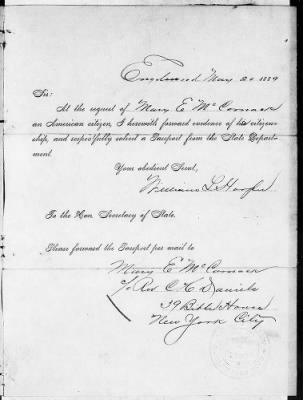 Englewood May 20 1889
Sir:
At the request of Mary E McCornack
an American citizen, I herewith forward evidence of her citizen-
ship, and respectfully solicit a Passport from the State Depart-
ment.
Your obedient Servt,
William L
To the Hon. Secretary of State.
Please forward the Passport per mail to
Mary E McCornack
c/o Rev. C. H. Daniels
39 Bible House
New York City